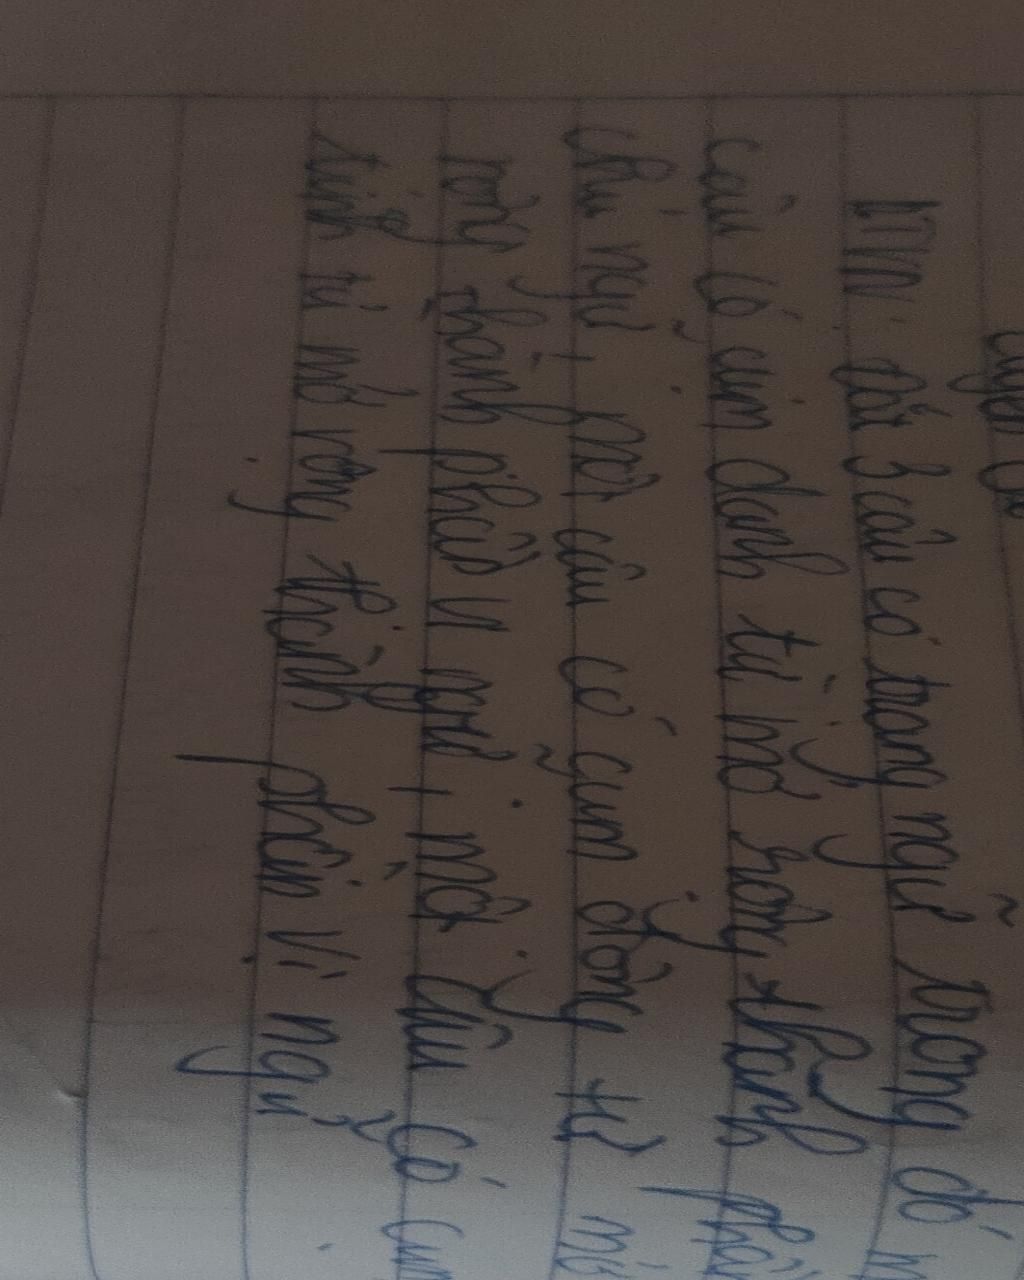 đặt 3 câu có trang ngữ trong đó
câu có cụm danh từ mở rộng thành phần
chủ ngữ, một câu có cụm động từ mở
rộng thành phần vị ngữ, một câu có cụm
tính từ mở rộng thành phần vị ngữ